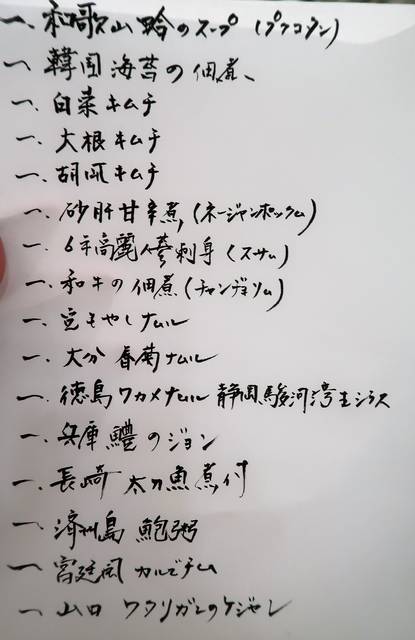 一、和歌山蛤のスープ(プクコタン)
一、韓国海苔の佃煮、
一、白菜キムチ
一、大根キムチ
一、胡瓜キムチ
一、砂肝甘辛煮、(ネージャンポックム)
一、6年高麗人参刺身(スサム)
一、和牛の佃煮(チャンヂョリム)
一、豆もやしナムル
一、大分 春菊ナムル
一、徳島ワカメナムル 静岡駿河湾生シラス
一、兵庫 鱧のジョン
一、長崎 太刀魚煮付
一、済州島 鮑粥
一、宮廷風 カルビチム
一、山口 ワタリガニのケジャン